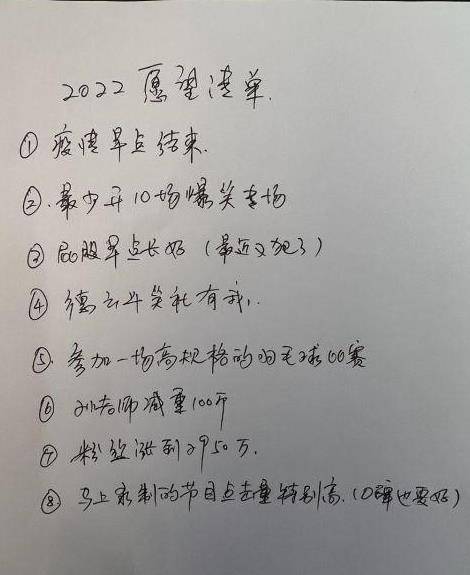 2022 愿望清单.
① 疫情早点结束.
②. 最少开10场爆笑专场
③ 屁股早点长好（最近又犯了）
④ 德云斗笑社有我..
⑤. 参加一场高规格的羽毛球比赛
⑥ 孙老师减重100斤
⑦ 粉丝涨到2950万.
⑧ 马上录制的节目点击量特别高.（口碑也要好）